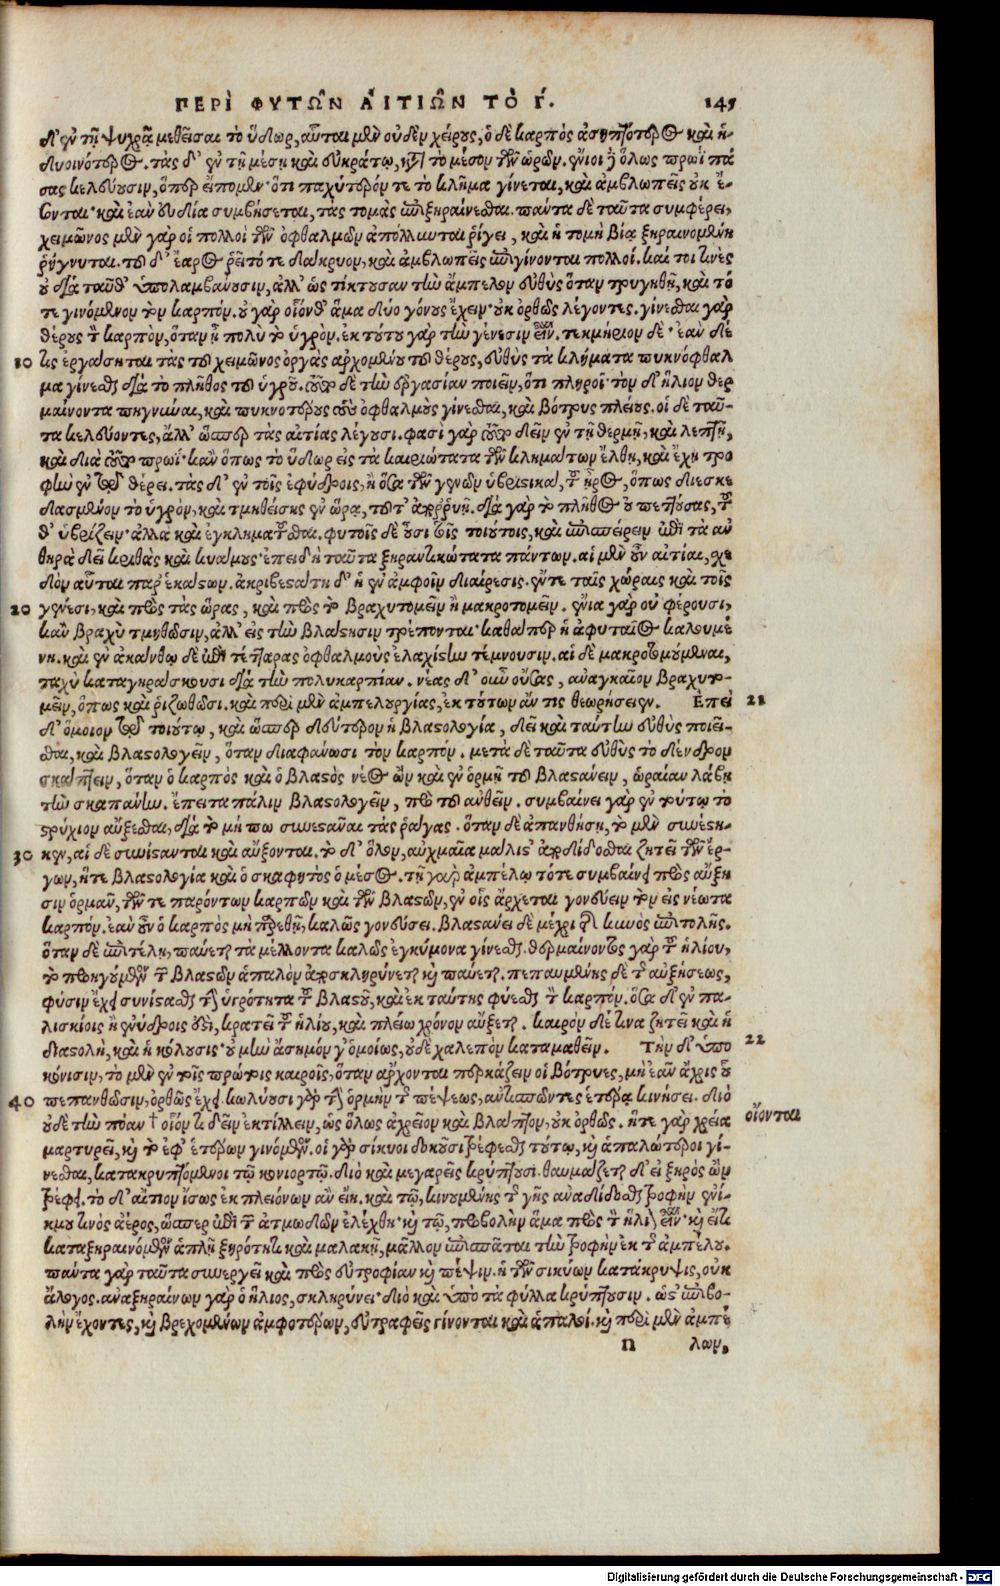 ΠΕΡῚ ΦΥΤΩ͂Ν ΑἸΤΙΩ͂Ν ΤῸ Γ΄. 145
δ' ἐν τῇ ψυχρᾷ μεθεῖσαι τὸ ὕδωρ, αὗται μὲν οὐδὲν χείρους, ὁ δὲ καρπὸς ἀσηπτότερος καὶ ἡ-
δυοινότερος. τὰς δ' ἐν τῇ μέσῃ καὶ εὐκράτῳ, κατὰ τὸ μέσον τῶν ὡρῶν. ἔνιοι δὲ ὅλως πρωῒ πά
σας κελεύουσιν, ὅπερ εἴπομεν· ὅτι παχύτερόν τε τὸ κλῆμα γίνεται, καὶ ἀμβλωπεῖς οὐκ ἔ-
σονται· καὶ ἐὰν εὐδία συμβήσεται, τὰς τομὰς ἐπιξηραίνεσθαι. πάντα δὲ ταῦτα συμφέρει,
χειμῶνος μὲν γὰρ οἱ πολλοὶ τῶν ὀφθαλμῶν ἀπόλλυνται ῥίγει, καὶ ἡ τομὴ βίᾳ ξηραινομένη
ῥήγνυται. τοῦ δ' ἔαρος ῥεῖ τότε δάκρυον, καὶ ἀμβλωπεῖς ἐπιγίνονται πολλοί. καί τοι τινὲς
οὐ διὰ ταῦθ' ὑπολαμβάνουσιν, ἀλλ' ὡς τίκτουσαν τὴν ἄμπελον εὐθὺς ὅταν τρυγηθῇ, καὶ τό
τε γινόμενον τὸν καρπόν. οὐ γὰρ οἷόνθ' ἅμα δύο γόνους ἔχειν· οὐκ ὀρθῶς λέγοντες. γίνεσθαι γὰρ
θέρους τὸν καρπὸν, ὅταν ᾖ πολὺ τὸ ὑγρόν. ἐκ τούτου γὰρ τὴν γένεσιν εἶναι. τεκμήριον δέ· ἐὰν δέ
10 τις ἐργάσηται τὰς τοῦ χειμῶνος ὀργὰς ἀρχομένου τοῦ θέρους, εὐθὺς τὰ κλήματα πυκνόφθαλ
μα γίνεσθαι διὰ τὸ πλῆθος τοῦ ὑγροῦ. τοῦτο δὲ τὴν ἐργασίαν ποιεῖν, ὅτι πληροῖ· τὸν δ' ἥλιον θερ
μαίνοντα πηγνύναι, καὶ πυκνοτέρους τοὺς ὀφθαλμοὺς γίνεσθαι, καὶ βότρυς πλείους. οἱ δὲ ταῦ-
τα κελεύοντες, ἀλλ' ὥσπερ τὰς αἰτίας λέγουσι. φασὶ γὰρ τοῦτο δεῖν ἐν τῇ θερμῇ, καὶ λεπτῇ,
καὶ διὰ τοῦτο πρωΐ· κἂν ὅπως τὸ ὕδωρ εἰς τὰ καιριώτατα τῶν κλημάτων ἔλθῃ, καὶ ἔχῃ τρο
φὴν ἐν τῷ θέρει. τὰς δ' ἐν τοῖς ἐφύδροις, ἢ ὅσα τῶν γενῶν ὑβριστικὰ, τοῦ ἦρος, ὅπως διεσκε
δασμένον τὸ ὑγρὸν, καὶ τμηθείσης ἐν ὥρᾳ, τότ' ἀπορρυῇ. διὰ γὰρ τὸ πλῆθος οὐ πεττούσας, τοῦ
θ' ὑβρίζειν· ἀλλὰ καὶ ἐγκληματοῦσθαι. φυτοῖς δὲ οὖσι τοῖς τοιούτοις, καὶ ἐπισπείρειν ἐπὶ τὰ ἀν
θηρὰ δεῖ κριθὰς καὶ κυάμους· ἐπειδὴ ταῦτα ξηραντικώτατα πάντων. αἱ μὲν οὖν αἰτίαι, σχε
δὸν αὗται παρ' ἑκάστων. ἀκριβεστάτη δ' ἡ ἐν ἀμφοῖν διαίρεσις. ἔν τε ταῖς χώραις καὶ τοῖς
20 γένεσι, καὶ πρὸς τὰς ὥρας, καὶ πρὸς τὸ βραχυτομεῖν ἢ μακροτομεῖν. ἔνια γὰρ οὐ φέρουσι,
κἂν βραχὺ τμηθῶσιν, ἀλλ' εἰς τὴν βλάστησιν τρέπονται· καθάπερ ἡ ἀφυταῖος καλουμέ
νη. καὶ ἐν ἀκάνθῳ δὲ ἐπὶ τέτταρας ὀφθαλμοὺς ἐλαχίστω τέμνουσιν. αἱ δὲ μακροτομούμεναι,
ταχὺ καταγηράσκουσι διὰ τὴν πολυκαρπίαν. νέας δ' οὖν οὔσας, ἀναγκαῖον βραχυτο-
μεῖν, ὅπως καὶ ῥιζωθῶσι. καὶ περὶ μὲν ἀμπελουργίας, ἐκ τούτων ἄν τις θεωρήσειεν. Ἐπεὶ 21
δ' ὅμοιον τῷ τοιούτῳ, καὶ ὥσπερ δεύτερον ἡ βλαστολογία, δεῖ καὶ ταύτην εὐθὺς ποιεῖ-
σθαι, καὶ βλαστολογεῖν, ὅταν διαφαίνωσι τὸν καρπόν. μετὰ δὲ ταῦτα εὐθὺς τὸ δένδρον
σκάπτειν, ὅταν ὁ καρπὸς καὶ ὁ βλαστὸς νέος ὢν καὶ ἐν ὁρμῇ τοῦ βλαστάνειν, ὡραίαν λάβῃ
τὴν σκαπάνην. ἔπειτα πάλιν βλαστολογεῖν, πρὸ τοῦ ἀνθεῖν. συμβαίνει γὰρ ἐν τούτῳ τὸ
βρύχιον αὔξεσθαι, διὰ τὸ μή πω συνεστάναι τὰς ῥάγας. ὅταν δὲ ἀπανθήσῃ, τὸ μὲν συνέστη-
30 κεν, αἱ δὲ συνίστανται καὶ αὔξονται. τὸ δ' ὅλον, αὐχμαῖα μάλιστ' ἀποδίδοσθαι ζητεῖ τῶν ἔρ-
γων, ἥτε βλαστολογία καὶ ὁ σκαφητὸς ὁ μέσος. τῇ γὰρ ἀμπέλῳ τότε συμβαίνει πρὸς αὔξη
σιν ὁρμᾶν, τῶν τε παρόντων καρπῶν καὶ τῶν βλαστῶν, ἐν οἷς ἄρχεται γονεύειν τὸν εἰς νέωτα
καρπόν. ἐὰν οὖν ὁ καρπὸς μὴ πρεθῇ, καλῶς γονεύσει. βλαστάνει δὲ μέχρι περὶ κυνὸς ἐπιτολῆς.
ὅταν δὲ ἐπιτέλῃ, παύεται τὰ μέλλοντα καλῶς ἐγκύμονα γίνεσθαι. θερμαίνοντος γὰρ τοῦ ἡλίου,
τὸ προηγούμενον τῶν βλαστῶν ἁπαλὸν ἀποσκληρύνεται καὶ παύεται. πεπαυμένης δὲ τῆς αὐξήσεως,
φύσιν ἔχει συνίστασθαι τὴν ὑγρότητα τοῦ βλαστοῦ, καὶ ἐκ ταύτης φύεσθαι τὸν καρπόν. ὅσα δ' ἐν πα-
λισκίοις ἢ ἐνύδροις ἐστὶ, κρατεῖ τοῦ ἡλίου, καὶ πλείω χρόνον αὔξεται. καιρὸν δέ τινα ζητεῖ καὶ ἡ
διαστολὴ, καὶ ἡ κόλουσις· οὐ μὴν ἄσημόν γ' ὁμοίως, οὐδὲ χαλεπὸν καταμαθεῖν. Τὴν δ' ὑπο 22
κόνισιν, τὸ μὲν ἐν τοῖς πρώτοις καιροῖς, ὅταν ἄρχονται περκάζειν οἱ βότρυες, μὴ ἐᾶν ἄχρις οὗ
40 πεπανθῶσιν, ὀρθῶς ἔχει. κωλύουσι γὰρ τὴν ὁρμὴν τῆς πέψεως, ἀντισπῶντες ἑτέρᾳ κινήσει. διὸ
οὐδὲ τὴν πόαν † οἷόν τι δεῖν ἐκτίλλειν, ὡς ὅλως ἀχρεῖον καὶ βλάπτον, οὐκ ὀρθῶς. ἥτε γὰρ χρεία οἴονται
μαρτυρεῖ, καὶ τὸ ἐφ' ἑτέρων γινόμενον. οἱ γὰρ σίκυοι δοκοῦσι τρέφεσθαι τούτῳ, καὶ ἁπαλώτεροι γί-
νεσθαι, κατακρυπτόμενοι τῷ κονιορτῷ. διὸ καὶ μεγαρεῖς κρύπτουσι. θαυμάζεται δ' εἰ ξηρὸς ὢν
τρέφει. τὸ δ' αἴτιον ἴσως ἐκ πλειόνων ἂν εἴη. καὶ τῷ, κινουμένης τῆς γῆς ἀναδίδοσθαι τροφὴν ἐνί-
κμου τινὸς ἀέρος, ὥσπερ ἐπὶ τῶν ἀτμωδῶν ἐλέχθη· καὶ τῷ, προβολὴν ἅμα πρὸς τὸν ἥλιον εἶναι· καὶ εἴ τι
καταξηραινόμενον ἁπλῇ ξηρότητι καὶ μαλακῇ, μᾶλλον ἐπισπᾶται τὴν τροφὴν ἐκ τῆς ἀμπέλου.
πάντα γὰρ ταῦτα συνεργεῖ καὶ πρὸς εὐτροφίαν καὶ πέψιν. ἡ τῶν σικύων κατάκρυψις, οὐκ
ἄλογος. ἀναξηραίνων γὰρ ὁ ἥλιος, σκληρύνει· διὸ καὶ ὑπὸ τὰ φύλλα κρύπτουσιν. ὥστ' ἐπιβο-
λὴν ἔχοντες, καὶ βρεχομένων ἀμφοτέρων, εὐτραφεῖς γίνονται καὶ ἁπαλοί. καὶ περὶ μὲν ἀμπέ
n λων,
Digitalisierung gefördert durch die Deutsche Forschungsgemeinschaft - DFG